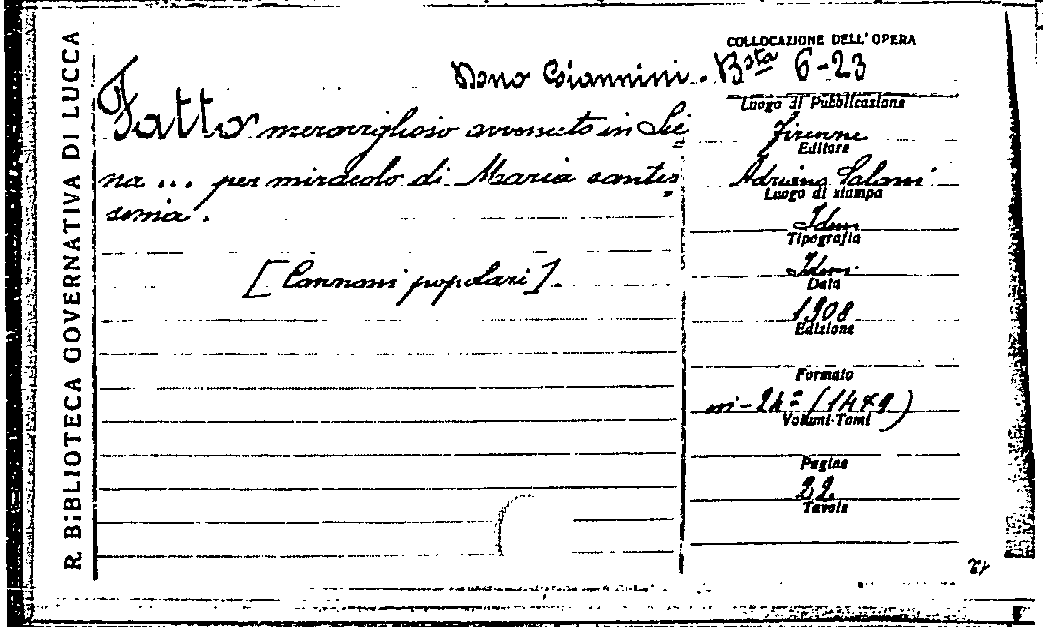 R. BIBLIOTECA GOVERNATIVA DI LUCCA
Dono Giannini.
Fatto meraviglioso avvenuto in Sie=
na ... per miracolo di Maria santis=
sima.
[Canzoni popolari].
COLLOCAZIONE DELL'OPERA
Bsta 6-23
Luogo di Pubblicazione
Firenze
Editore
Adriano Salani
Luogo di stampa
Idem
Tipografia
Idem
Data
1908
Edizione
Formato
in-24° (14x9)
Volumi-Tomi
Pagine
22
Tavole